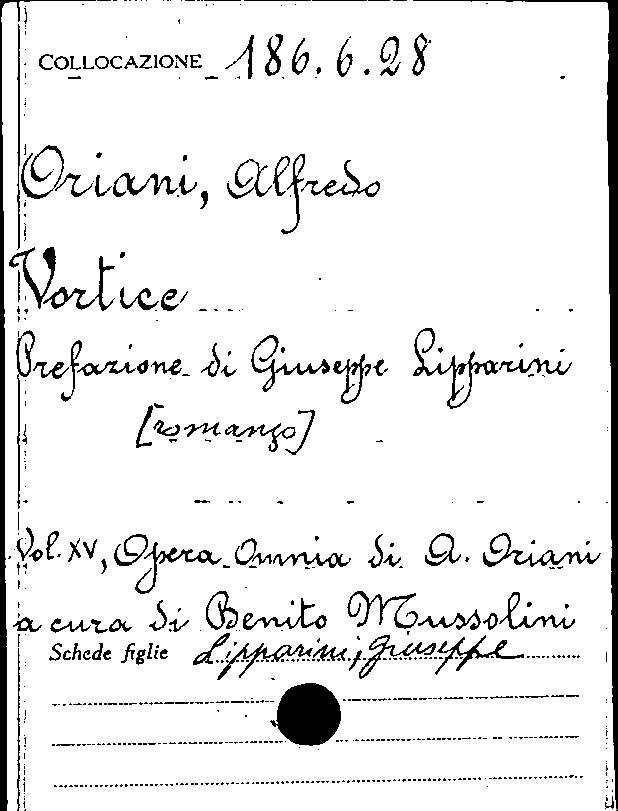 COLLOCAZIONE 186.6.28
Oriani, Alfredo
Vortice
Prefazione di Giuseppe Lipparini
[romanzo]
Vol. XV, Opera Omnia di A. Oriani
a cura di Benito Mussolini
Schede figlie Lipparini, Giuseppe